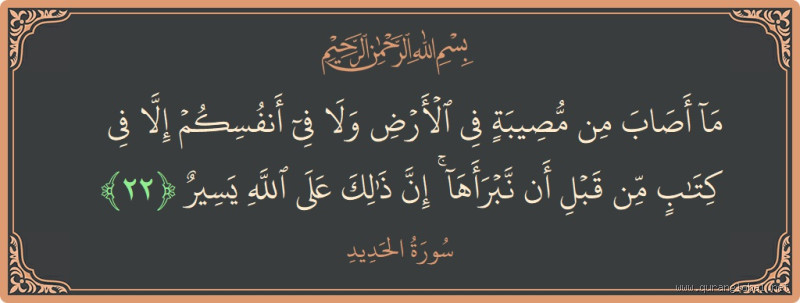 بِسْمِ اللَّهِ الرَّحْمَٰنِ الرَّحِيمِ
مَآ أَصَابَ مِن مُّصِيبَةٍ فِى ٱلْأَرْضِ وَلَا فِىٓ أَنفُسِكُمْ إِلَّا فِى
كِتَـٰبٍ مِّن قَبْلِ أَن نَّبْرَأَهَآ ۚ إِنَّ ذَٰلِكَ عَلَى ٱللَّهِ يَسِيرٌ ﴿٢٢﴾
سُورَةُ الحَدِيدِ